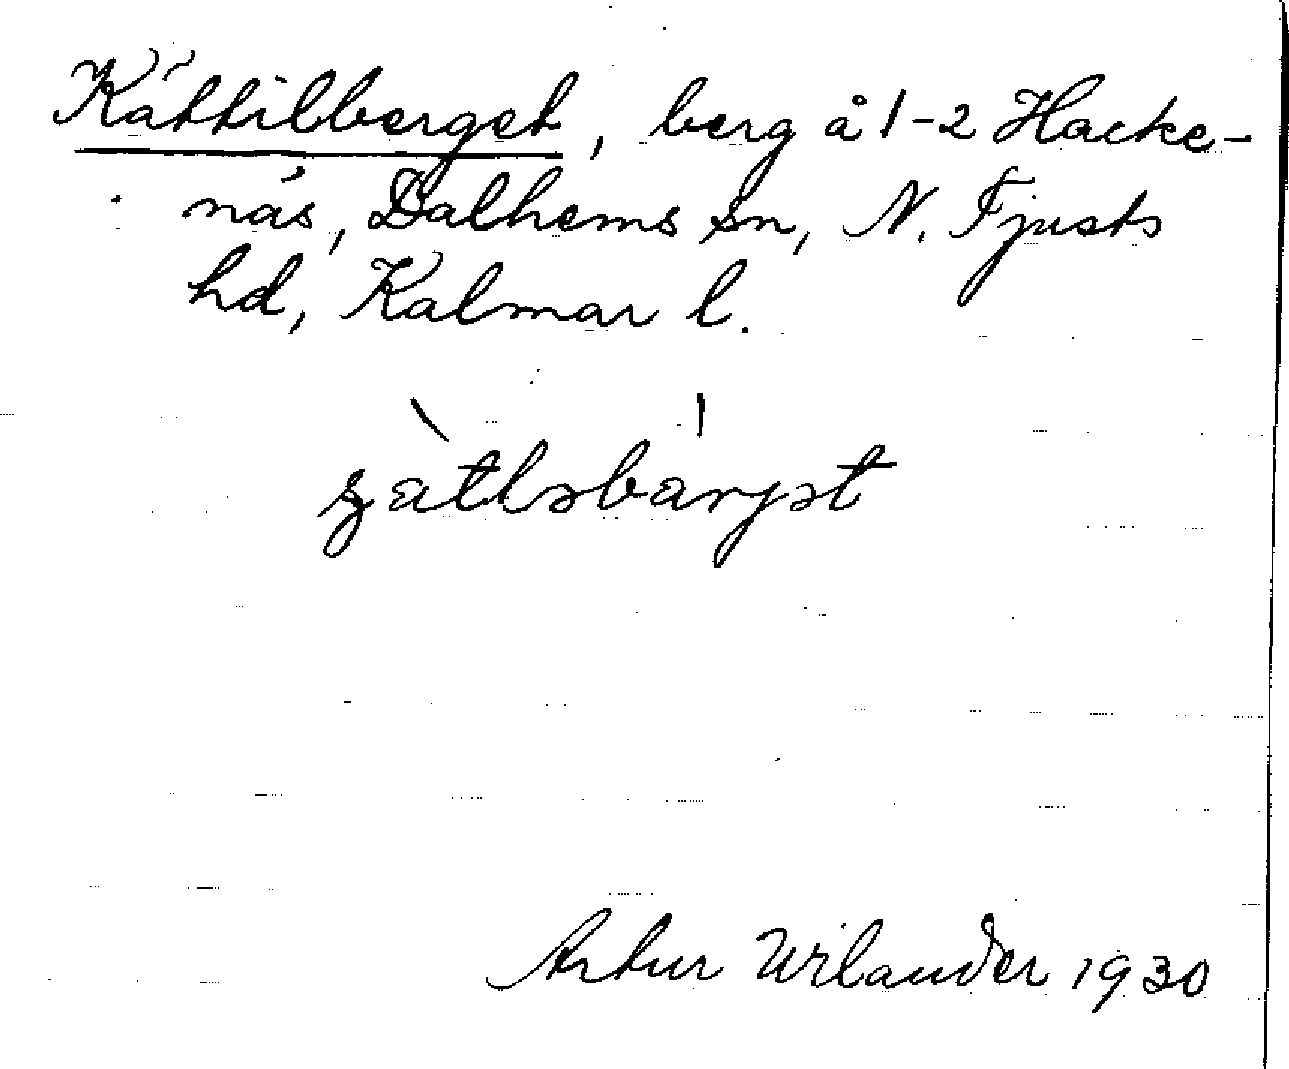 Kättilberget, berg å 1-2 Hacke-
näs, Dalhems sn, N. Tjusts
hd, Kalmar l.
Artur Wilander 1930